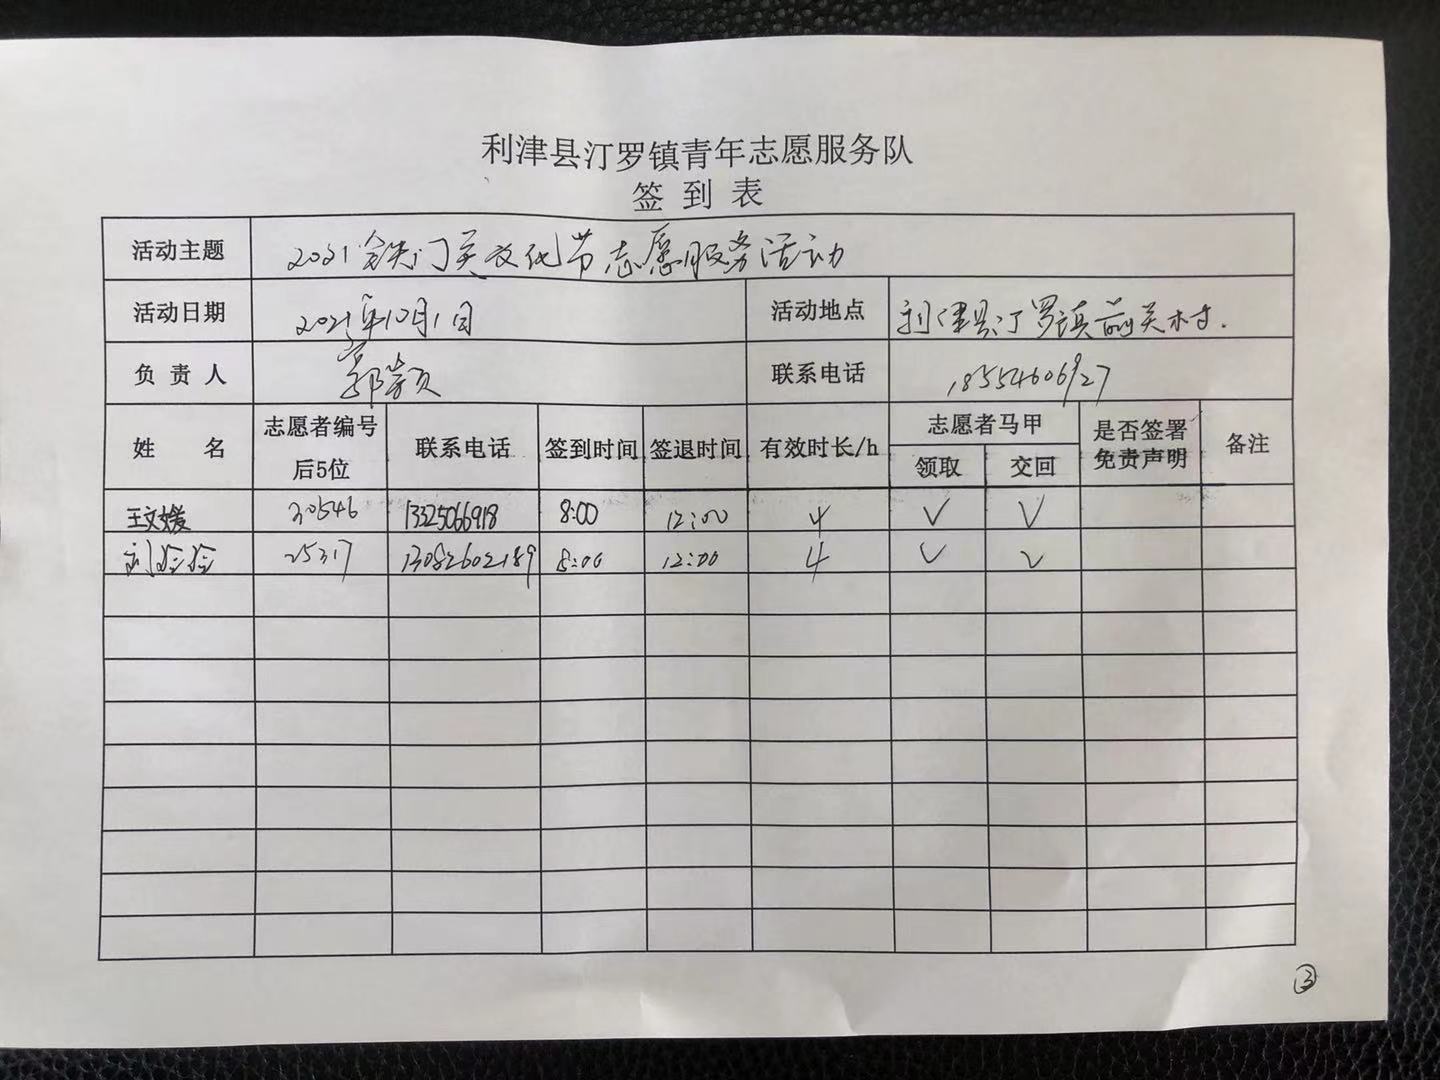 利津县汀罗镇青年志愿服务队
签 到 表
活动主题 2021铁门关文化节志愿服务活动
活动日期 2021年10月1日 活动地点 利津县汀罗镇前关村.
负 责 人 郭崇页 联系电话 18554606927
姓 名 志愿者编号后5位 联系电话 签到时间 签退时间 有效时长/h 志愿者马甲 领取 交回 是否签署免责声明 备注
王文媛 30546 13325066918 8:00 12:00 4 √ √
刘 25317 13082602189 8:00 12:00 4 √ √
③